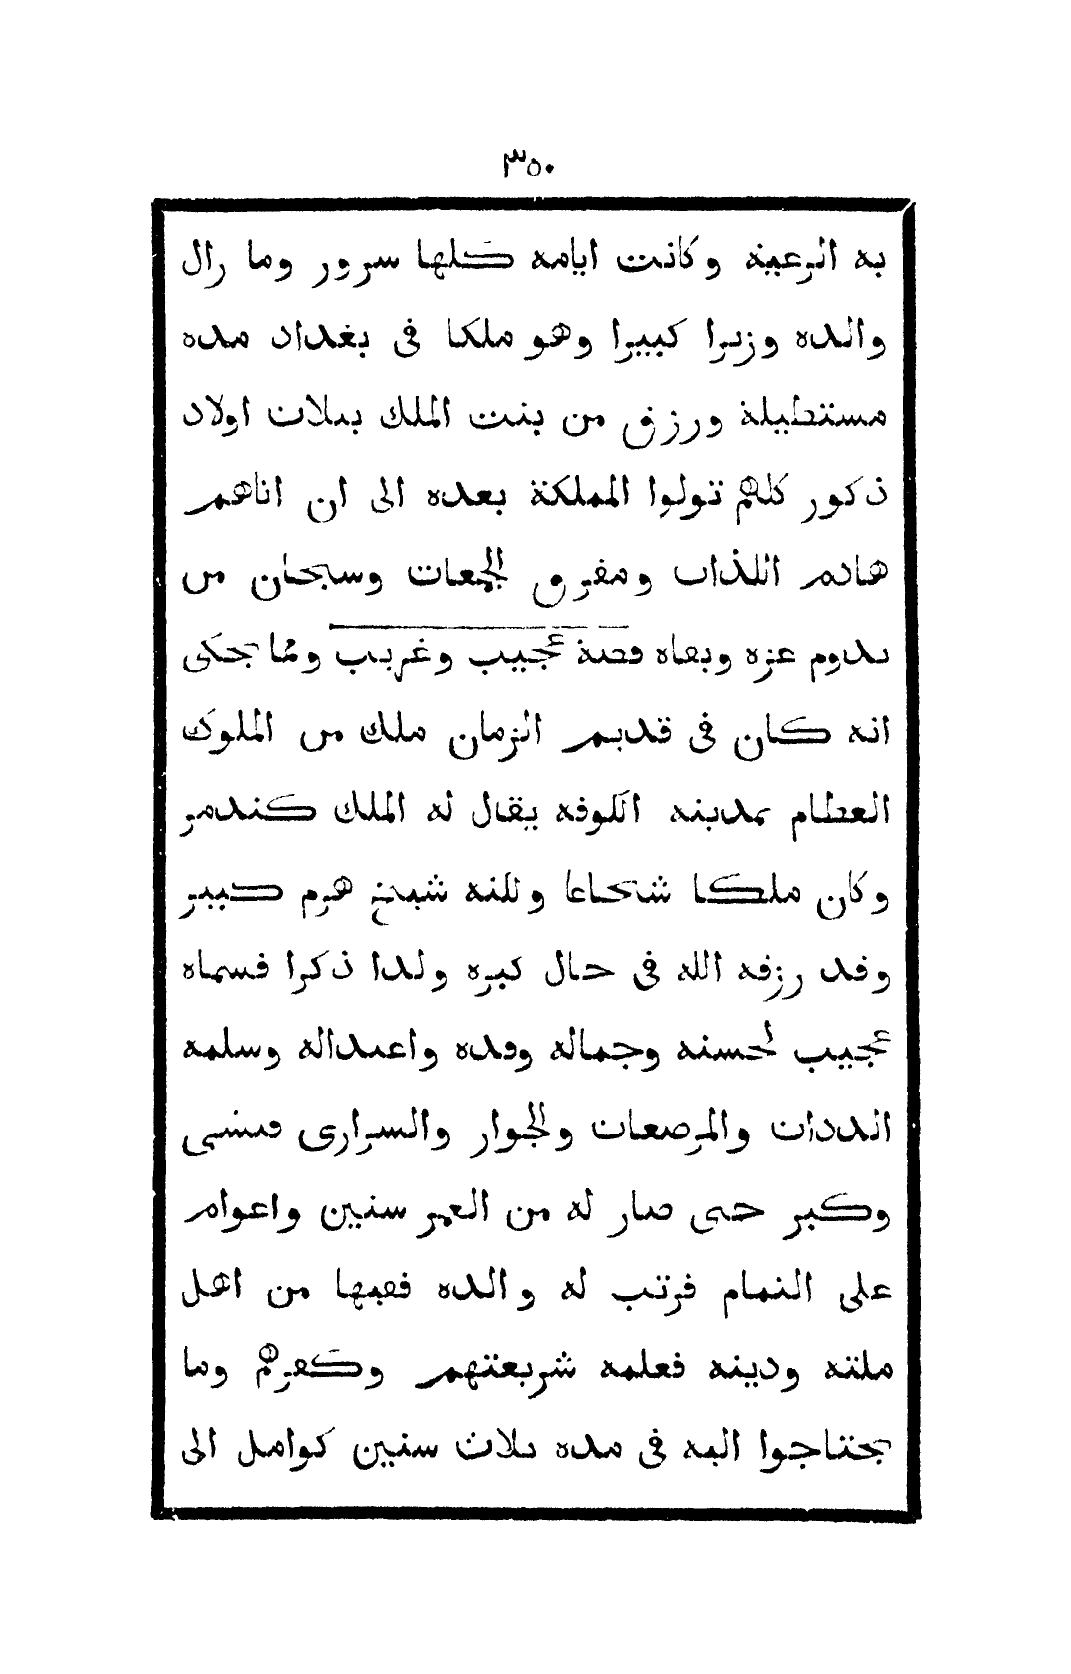 ٣٥٠
به الرعية وكانت ايامه كلها سرور وما زال
والده وزيرا كبيرا وهو ملكا فى بغداد مده
مستطيلة ورزق من بنت الملك بثلاث اولاد
ذكور كلهم تولوا المملكة بعده الى ان اتاهم
هادم اللذات ومفرق الجمعات وسبحان من
يدوم عزه وبقاه قصة عجيب وغريب ومما يحكى
انه كان فى قديم الزمان ملك من الملوك
العظام بمدينه الكوفه يقال له الملك كندمر
وكان ملكا شجاعا ولكنه شيخ هرم كبير
وقد رزقه الله فى حال كبره ولدا ذكرا فسماه
عجيب لحسنه وجماله وقده واعتداله وسلمه
الدادات والمرضعات والجوار والسرارى فنشى
وكبر حتى صار له من العمر سنين واعوام
على التمام فرتب له والده فقيها من اهل
ملته ودينه فعلمه شريعتهم وكفرهم وما
يحتاجوا اليه فى مده ثلاث سنين كوامل الى